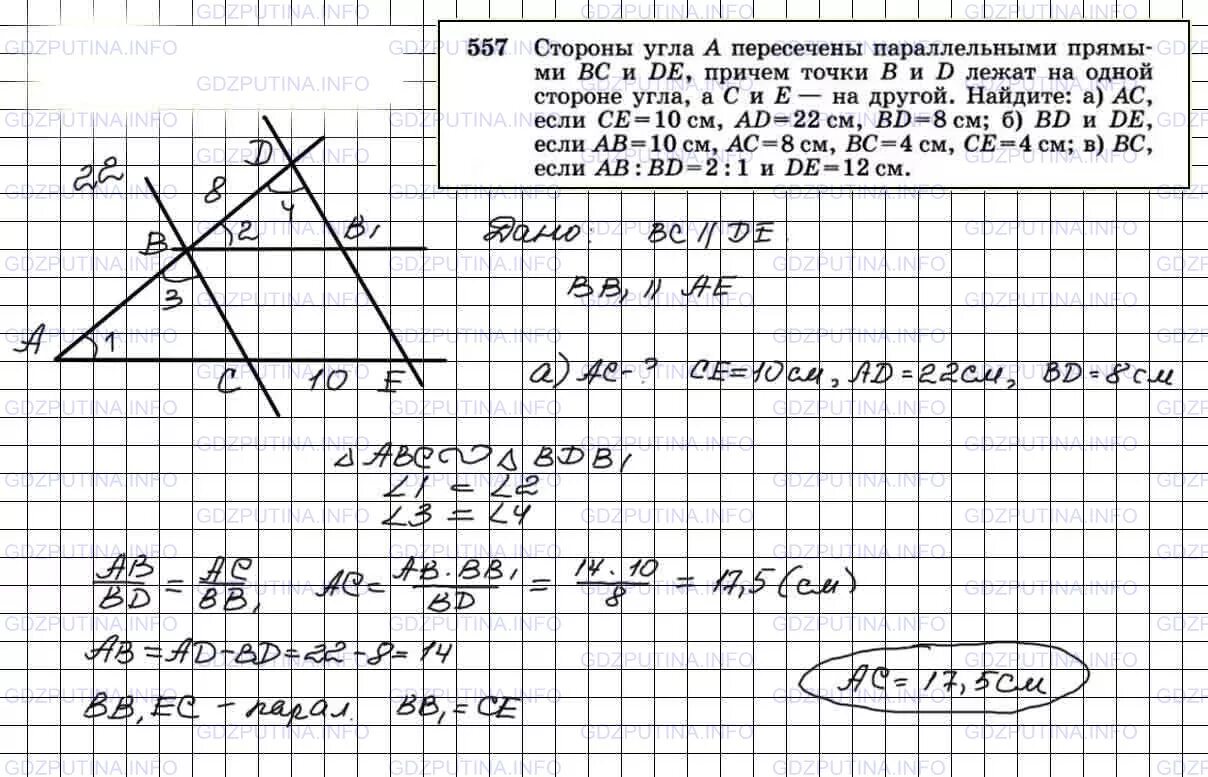 GDZPUTINA.INFO
557 Стороны угла A пересечены параллельными прямы-
ми BC и DE, причем точки B и D лежат на одной
стороне угла, а C и E — на другой. Найдите: а) AC,
если CE=10 см, AD=22 см, BD=8 см; б) BD и DE,
если AB=10 см, AC=8 см, BC=4 см, CE=4 см; в) BC,
если AB : BD=2 : 1 и DE=12 см.
22
D
8
4
B
2
B₁
3
A
1
C
10
E
Дано: BC || DE
BB₁ || AE
а) AC-? CE=10см, AD=22см, BD=8см
△ABC∽△BDB₁
∠1 = ∠2
∠3 = ∠4
AB/BD = AC/BB₁ AC = AB·BB₁/BD = 14·10/8 = 17,5 (см)
AB=AD-BD=22-8=14
AC= 17,5см
BB₁EC - парал. BB₁=CE